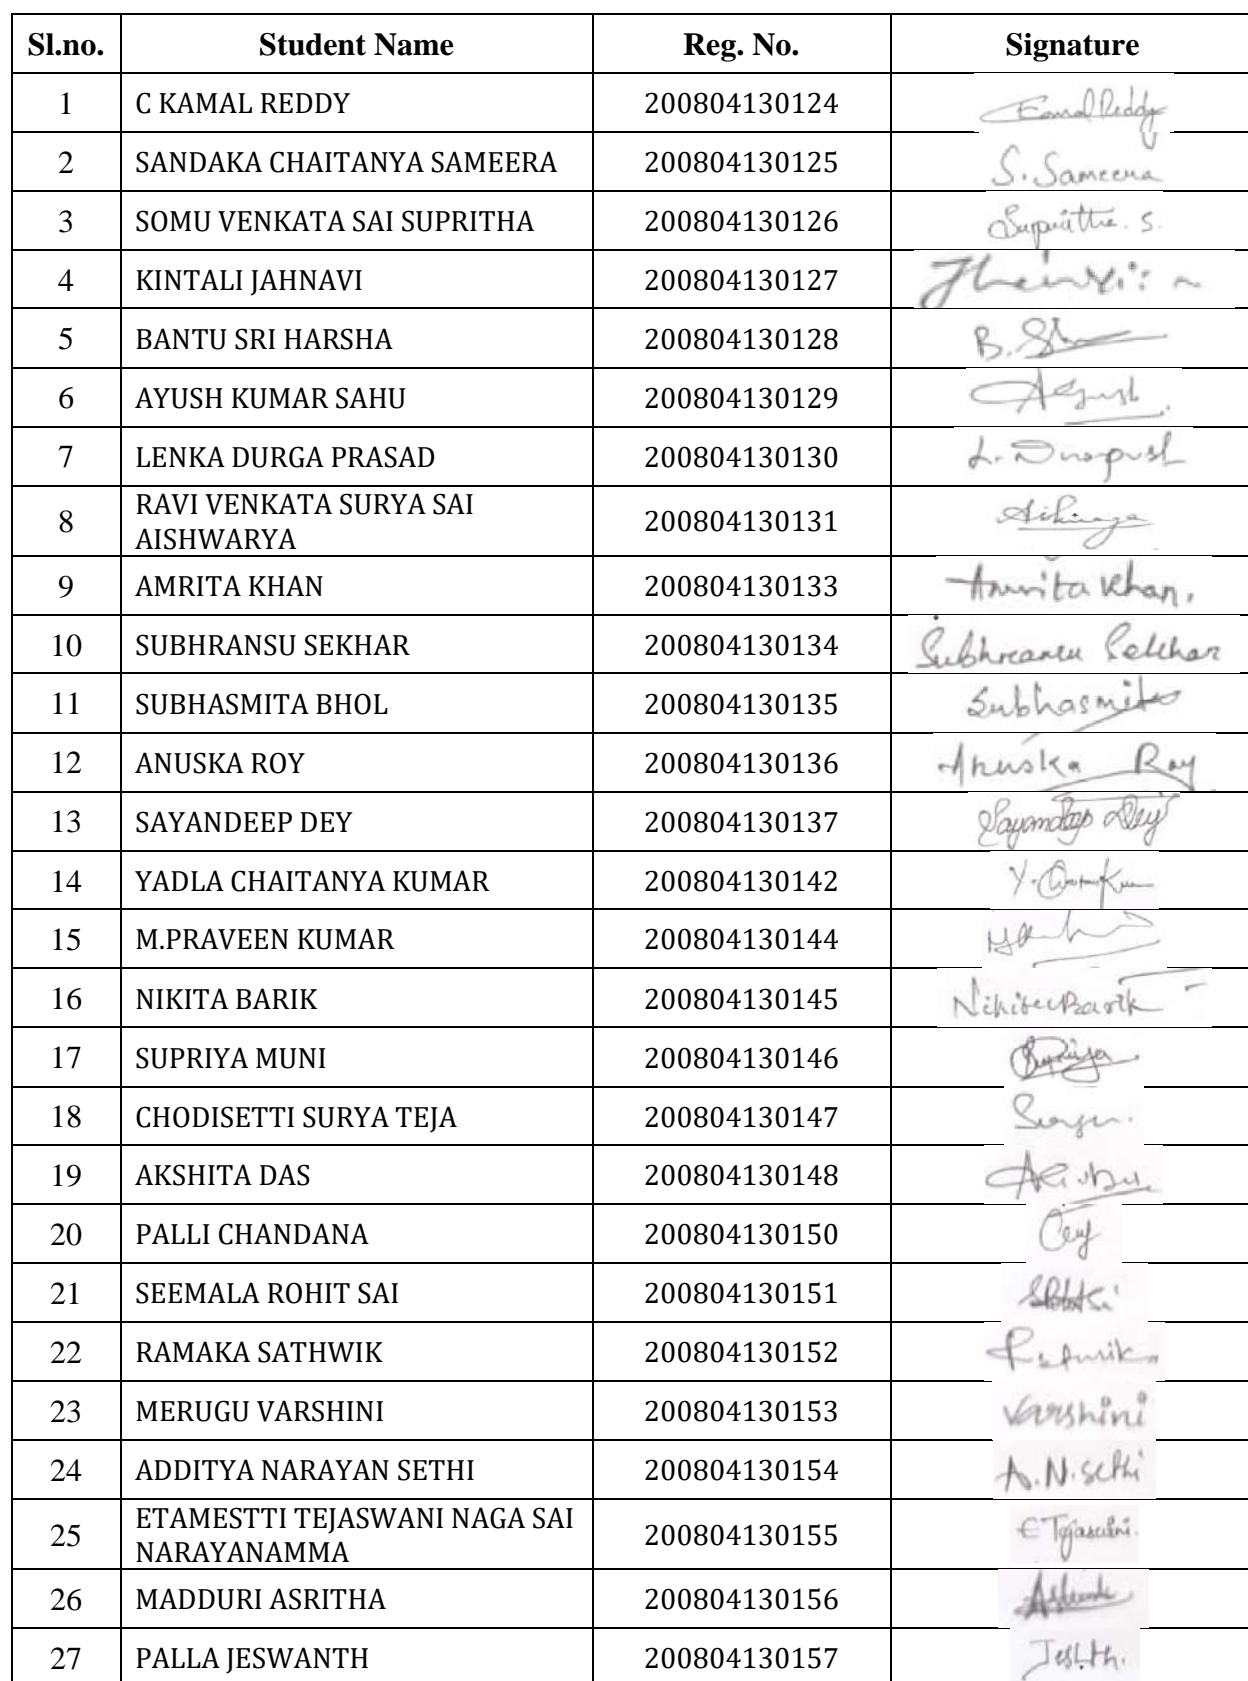 Sl.no. Student Name Reg. No. Signature
1 C KAMAL REDDY 200804130124 Kamal Reddy
2 SANDAKA CHAITANYA SAMEERA 200804130125 S. Sameera
3 SOMU VENKATA SAI SUPRITHA 200804130126 Supritha. S.
4 KINTALI JAHNAVI 200804130127
5 BANTU SRI HARSHA 200804130128 B.
6 AYUSH KUMAR SAHU 200804130129 Ayush
7 LENKA DURGA PRASAD 200804130130 L.
8 RAVI VENKATA SURYA SAI
AISHWARYA 200804130131
9 AMRITA KHAN 200804130133 Amrita Khan.
10 SUBHRANSU SEKHAR 200804130134 Subhransu Sekhar
11 SUBHASMITA BHOL 200804130135 Subhasmita
12 ANUSKA ROY 200804130136 Anuska Roy
13 SAYANDEEP DEY 200804130137 Sayandeep Dey
14 YADLA CHAITANYA KUMAR 200804130142 Y.
15 M.PRAVEEN KUMAR 200804130144
16 NIKITA BARIK 200804130145 Nikita Barik
17 SUPRIYA MUNI 200804130146 Supriya
18 CHODISETTI SURYA TEJA 200804130147
19 AKSHITA DAS 200804130148
20 PALLI CHANDANA 200804130150
21 SEEMALA ROHIT SAI 200804130151
22 RAMAKA SATHWIK 200804130152
23 MERUGU VARSHINI 200804130153 Varshini
24 ADDITYA NARAYAN SETHI 200804130154 A.N.Sethi
25 ETAMESTTI TEJASWANI NAGA SAI
NARAYANAMMA 200804130155 E Tejaswini.
26 MADDURI ASRITHA 200804130156
27 PALLA JESWANTH 200804130157